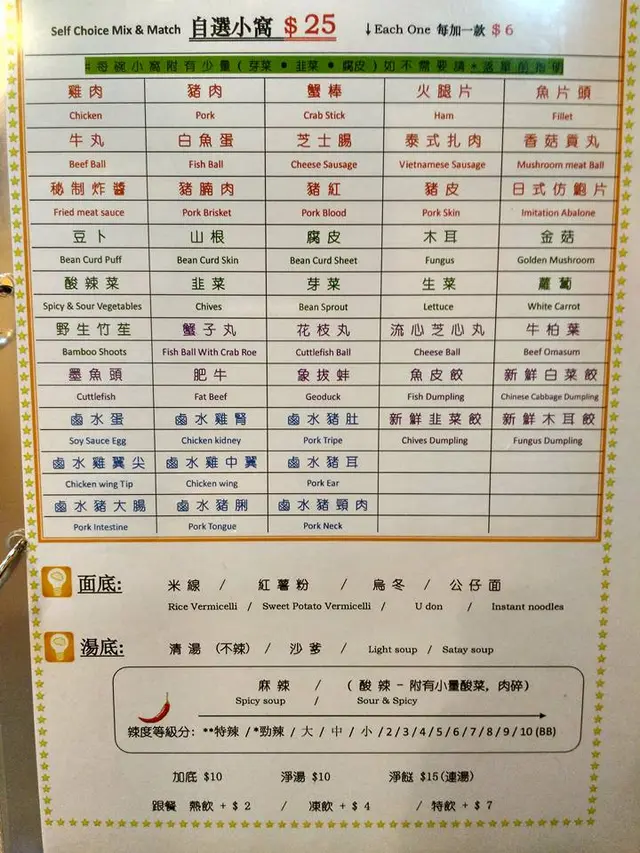 Self Choice Mix & Match 自選小窩 $ 25 ↓Each One 每加一款 $ 6
每碗小窩附有少量 ( 芽菜 • 韭菜 • 腐皮 ) 如不需要請
雞肉 豬肉 蟹棒 火腿片 魚片頭
Chicken Pork Crab Stick Ham Fillet
牛丸 白魚蛋 芝士腸 泰式扎肉 香菇貢丸
Beef Ball Fish Ball Cheese Sausage Vietnamese Sausage Mushroom meat Ball
秘制炸醬 豬腩肉 豬紅 豬皮 日式仿鮑片
Fried meat sauce Pork Brisket Pork Blood Pork Skin Imitation Abalone
豆卜 山根 腐皮 木耳 金菇
Bean Curd Puff Bean Curd Skin Bean Curd Sheet Fungus Golden Mushroom
酸辣菜 韭菜 芽菜 生菜 蘿蔔
Spicy & Sour Vegetables Chives Bean Sprout Lettuce White Carrot
野生竹笙 蟹子丸 花枝丸 流心芝心丸 牛柏葉
Bamboo Shoots Fish Ball With Crab Roe Cuttlefish Ball Cheese Ball Beef Omasum
墨魚頭 肥牛 象拔蚌 魚皮餃 新鮮白菜餃
Cuttlefish Fat Beef Geoduck Fish Dumpling Chinese Cabbage Dumpling
鹵水蛋 鹵水雞腎 鹵水豬肚 新鮮韭菜餃 新鮮木耳餃
Soy Sauce Egg Chicken kidney Pork Tripe Chives Dumpling Fungus Dumpling
鹵水雞翼尖 鹵水雞中翼 鹵水豬耳
Chicken wing Tip Chicken wing Pork Ear
鹵水豬大腸 鹵水豬脷 鹵水豬頸肉
Pork Intestine Pork Tongue Pork Neck
面底: 米線 / 紅薯粉 / 烏冬 / 公仔面
Rice Vermicelli / Sweet Potato Vermicelli / U don / Instant noodles
湯底: 清湯 (不辣) / 沙爹 / Light soup / Satay soup
麻辣 / ( 酸辣 - 附有小量酸菜, 肉碎)
Spicy soup / Sour & Spicy
辣度等級分: **特辣 / *勁辣 / 大 / 中 / 小 / 2 / 3 / 4 / 5 / 6 / 7 / 8 / 9 / 10 (BB)
加底 $10 淨湯 $10 淨餸 $15(連湯)
跟餐 熱飲 + $ 2 / 凍飲 + $ 4 / 特飲 + $ 7